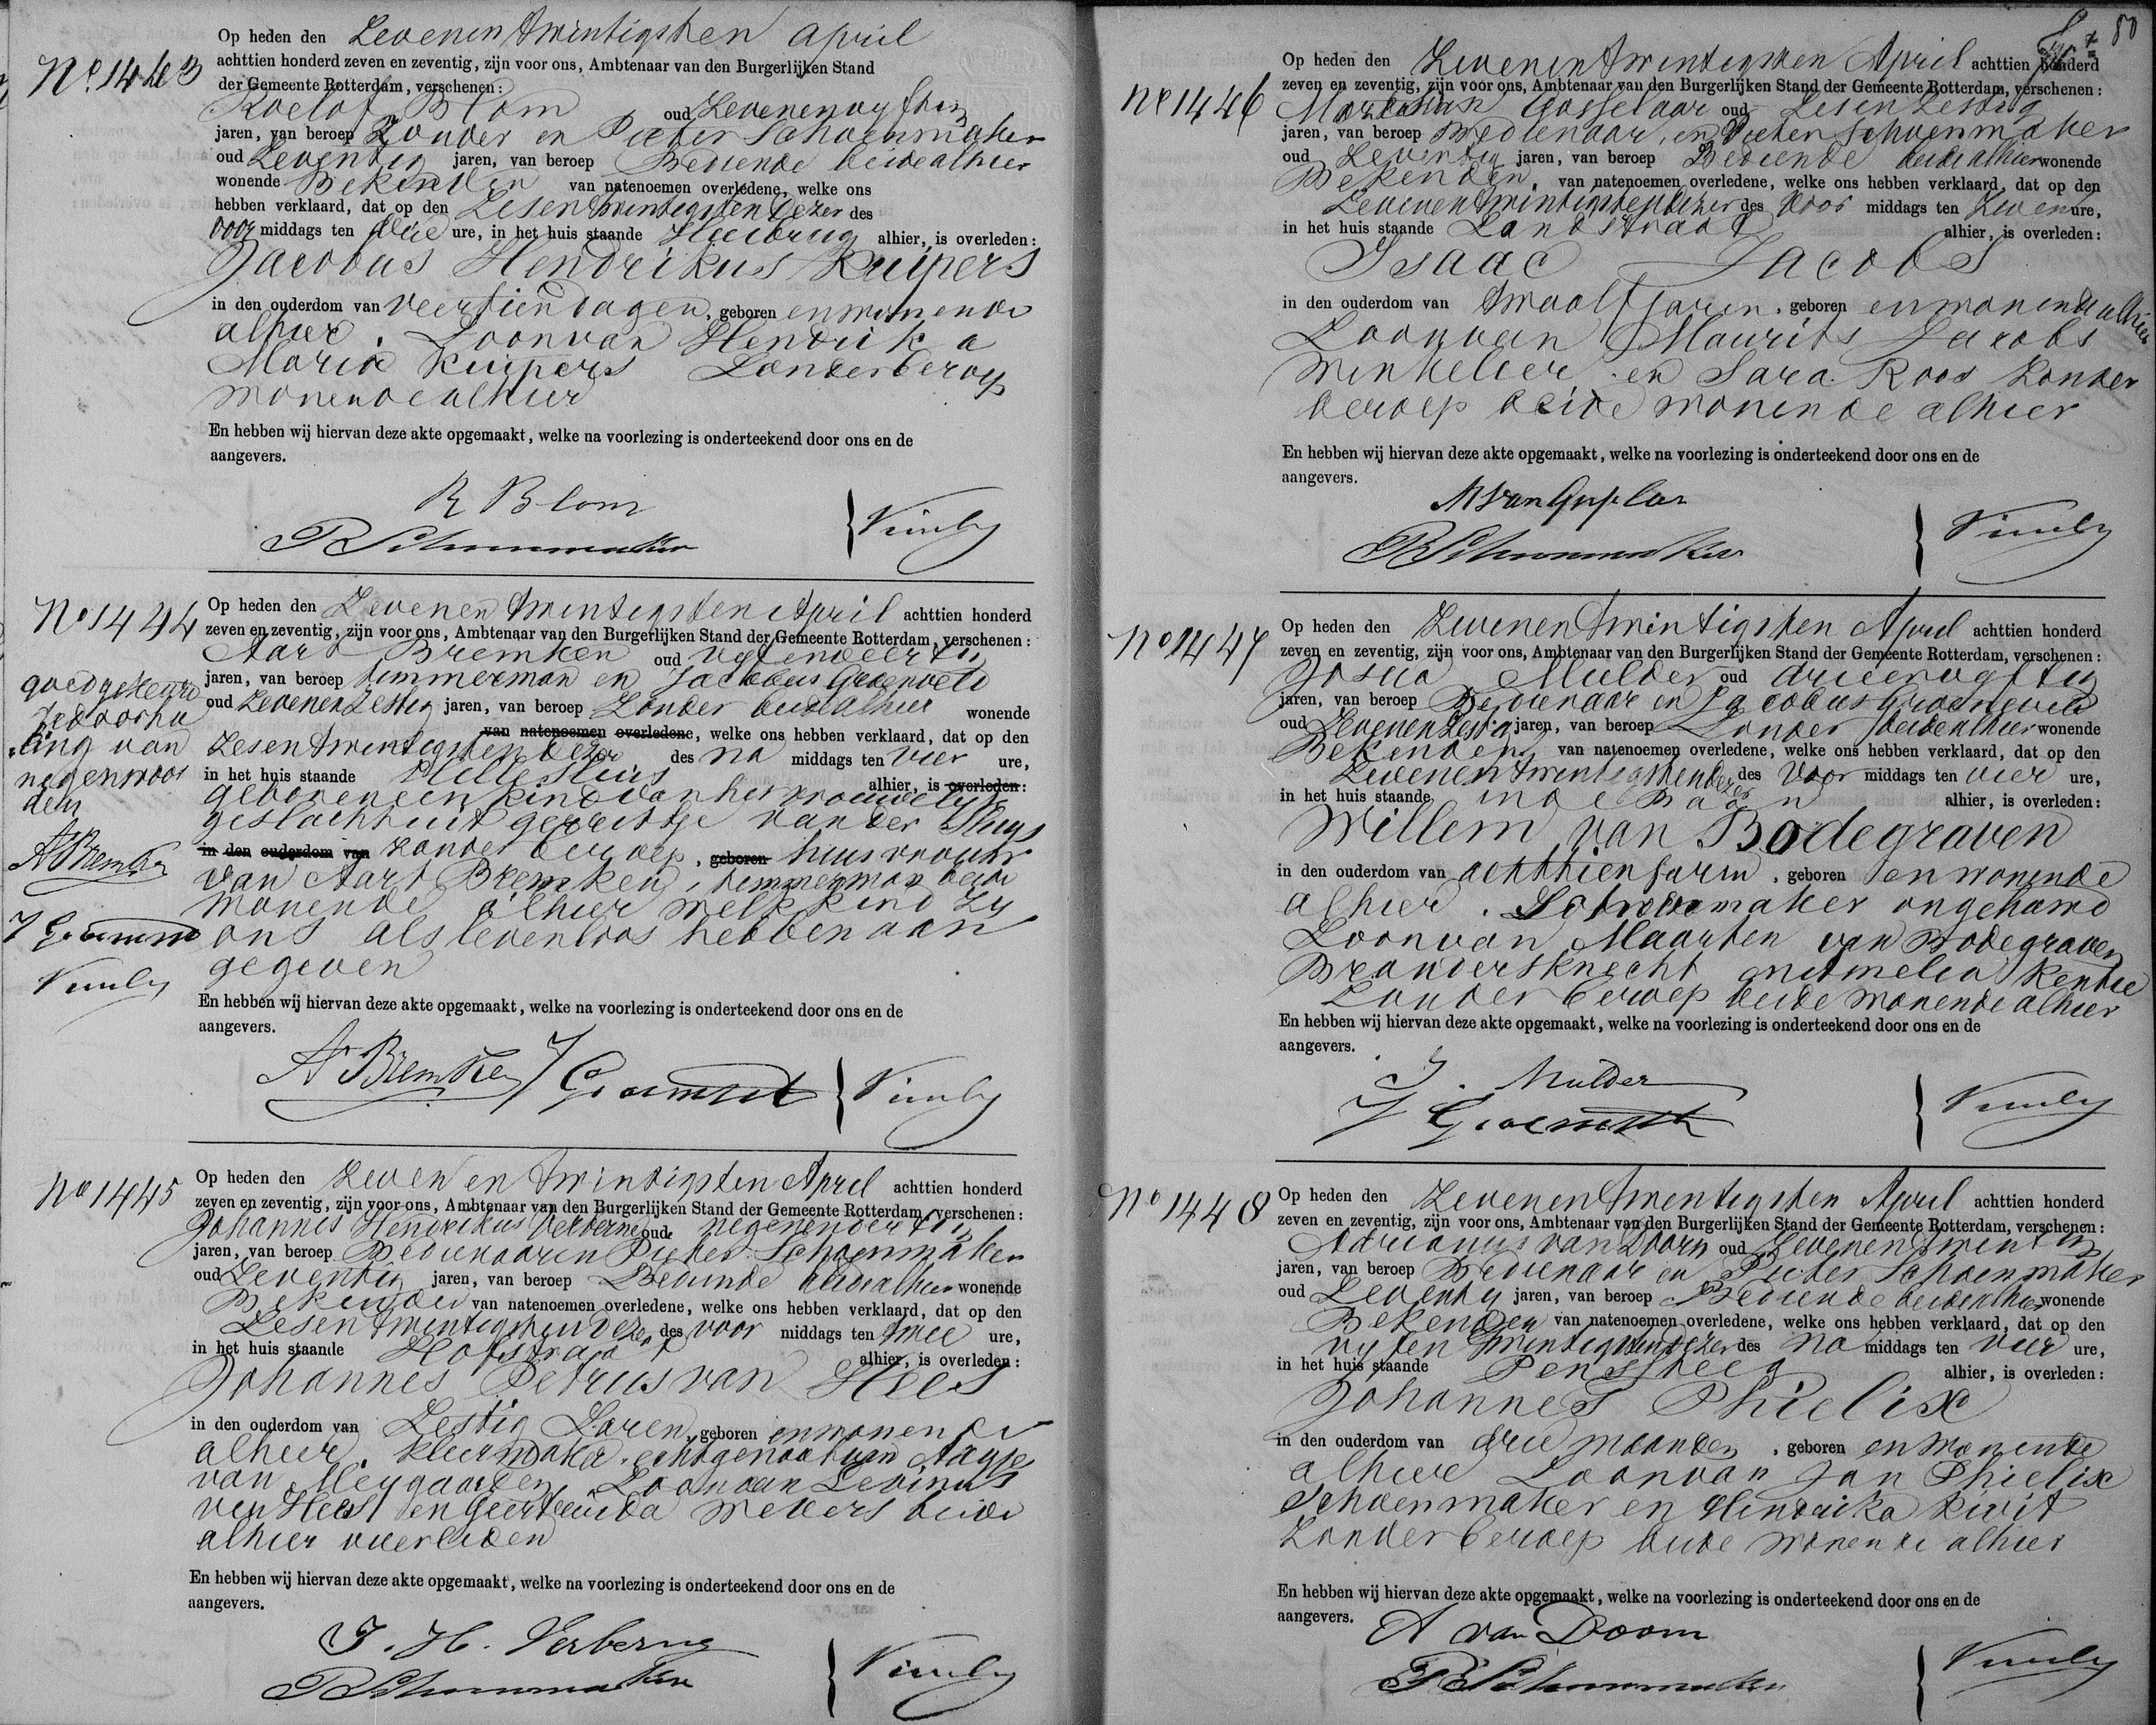 Nº 1443
Op heden den Zevenentwintigsten April
achttien honderd zeven en zeventig, zijn voor ons, Ambtenaar van den Burgerlijken Stand
der Gemeente Rotterdam, verschenen:
Roelof Blom oud Zevenenvyftig
jaren, van beroep Zonder en Pieter Schoenmaker
oud Zeventig jaren, van beroep Bediende beide alhier
wonende Bekenden van natenoemen overledene, welke ons
hebben verklaard, dat op den Zesentwintigsten dezer des
voor middags ten drie ure, in het huis staande alhier, is overleden:
Jacobus Hendrikus Kuipers
in den ouderdom van veertien dagen, geboren en wonende
alhier. Zoon van Hendrika
Maria Kuipers Zonder beroep
wonende alhier
En hebben wij hiervan deze akte opgemaakt, welke na voorlezing is onderteekend door ons en de
aangevers.
R Blom
P Schoenmaker
No 1444
Op heden den Zevenentwintigsten April achttien honderd
zeven en zeventig, zijn voor ons, Ambtenaar van den Burgerlijken Stand der Gemeente Rotterdam, verschenen:
Aart Bremken oud vyfenveertig
jaren, van beroep timmerman en Jacobus Groeneveld
oud Zevenenzestig jaren, van beroep Zonder beide alhier wonende
van natenoemen overledene, welke ons hebben verklaard, dat op den
Zesentwintigsten dezer des na middags ten vier ure,
in het huis staande Hellesluis alhier, is overleden:
geboren een kind van het vrouwelijk
geslacht uit Gerritje van der Sluys
in den ouderdom van zonder beroep, geboren huisvrouw
van Aart Bremken, timmerman beide
wonende alhier welk kind zy
ons als levenloos hebben aan
gegeven
goedgekeurd
de doorha
ling van
negen woor
den
A Bremken
J Groeneveld
En hebben wij hiervan deze akte opgemaakt, welke na voorlezing is onderteekend door ons en de
aangevers.
A Bremken J Groeneveld
No 1445
Op heden den Zeven en twintigsten April achttien honderd
zeven en zeventig, zijn voor ons, Ambtenaar van den Burgerlijken Stand der Gemeente Rotterdam, verschenen:
Johannes Hendrikus Verberne oud negenendertig
jaren, van beroep Bedienaar en Pieter Schoenmaker
oud Zeventig jaren, van beroep Bediende beide alhier wonende
Bekenden van natenoemen overledene, welke ons hebben verklaard, dat op den
Zesentwintigsten dezer des voor middags ten twee ure,
in het huis staande Hofstraat alhier, is overleden:
Johannes Petrus van Hees
in den ouderdom van Zestig Jaren, geboren en wonende
alhier. kleermaker. echtgenoot van Aagje
van Meygaarden, Zoon van Levinus
van Hees en Geertruida Wevers beide
alhier overleden
En hebben wij hiervan deze akte opgemaakt, welke na voorlezing is onderteekend door ons en de
aangevers.
J. H. Verberne
P Schoenmaker
80
Nº 1446
Op heden den Zevenentwintigsten April achttien honderd
zeven en zeventig, zijn voor ons, Ambtenaar van den Burgerlijken Stand der Gemeente Rotterdam, verschenen:
van Gosselaar oud Zesenzestig
jaren, van beroep Bedienaar, en Pieter Schoenmaker
oud Zeventig jaren, van beroep Bediende beide alhier wonende
Bekenden, van natenoemen overledene, welke ons hebben verklaard, dat op den
Zevenentwintigsten dezer des voor middags ten Zeven ure,
in het huis staande Zandstraat alhier, is overleden:
Isaac Jacobs
in den ouderdom van twaalf jaren, geboren en wonende alhier
Zoon van Maurits Jacobs
Winkelier en Sara Roos Zonder
beroep beide wonende alhier
En hebben wij hiervan deze akte opgemaakt, welke na voorlezing is onderteekend door ons en de
aangevers.
P Schoenmaker
No 1447
Op heden den Zevenentwintigsten April achttien honderd
zeven en zeventig, zijn voor ons, Ambtenaar van den Burgerlijken Stand der Gemeente Rotterdam, verschenen:
Josua Mulder oud drieenvyftig
jaren, van beroep Bedienaar en Jacobus Groeneveld
oud Zevenenzestig jaren, van beroep Zonder beide alhier wonende
Bekenden, van natenoemen overledene, welke ons hebben verklaard, dat op den
Zevenentwintigsten dezer des Voor middags ten vier ure,
in het huis staande in de Baan alhier, is overleden:
Willem van Bodegraven
in den ouderdom van achttien jaren, geboren en wonende
alhier. maker ongehuwd
Zoon van Maarten van Bodegraven
Brandersknecht en Amelia Kentie
Zonder beroep beide wonende alhier
En hebben wij hiervan deze akte opgemaakt, welke na voorlezing is onderteekend door ons en de
aangevers.
J. Mulder
J Groeneveld
No 1448
Op heden den Zevenentwintigsten April achttien honderd
zeven en zeventig, zijn voor ons, Ambtenaar van den Burgerlijken Stand der Gemeente Rotterdam, verschenen:
Adrianus van Doorn oud Zevenentwintig
jaren, van beroep Bedienaar en Pieter Schoenmaker
oud Zeventig jaren, van beroep Bediende beide alhier wonende
Bekenden van natenoemen overledene, welke ons hebben verklaard, dat op den
vyfentwintigsten dezer des na middags ten vier ure,
in het huis staande Penssteeg alhier, is overleden:
Johannes Phielix
in den ouderdom van drie maanden, geboren en wonende
alhier Zoon van Jan Phielix
Schoenmaker en Hendrika Kivit
Zonder beroep beide wonende alhier
En hebben wij hiervan deze akte opgemaakt, welke na voorlezing is onderteekend door ons en de
aangevers.
A van Doorn
P Schoenmaker